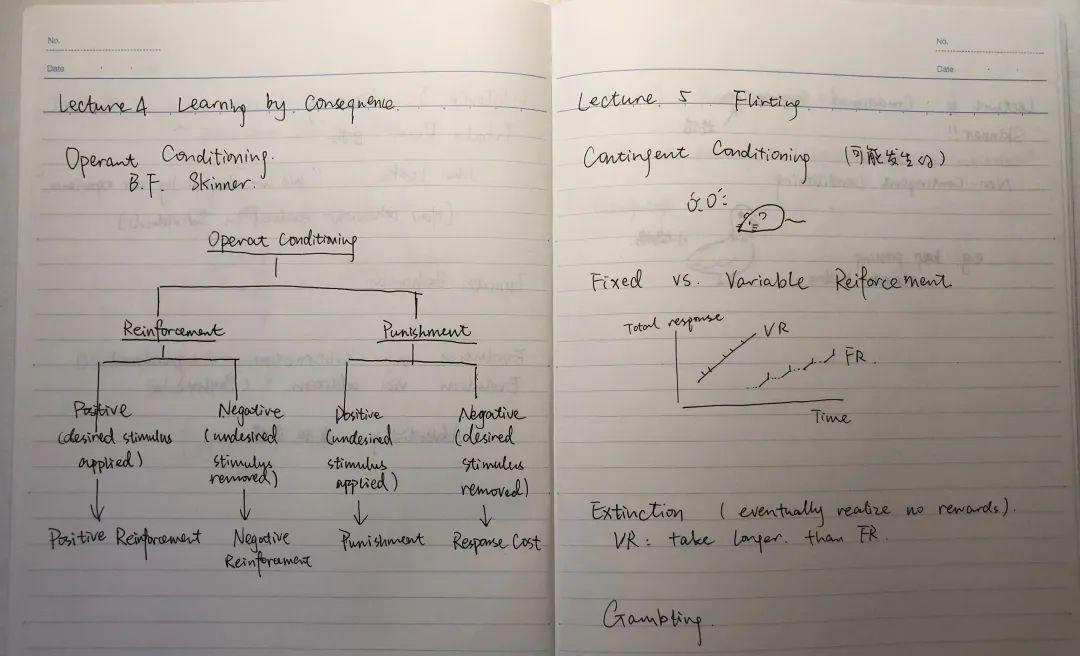 No.
Date
Lecture 4 Learning by Consequence.
Operant Conditioning.
B.F. Skinner.
Operat Conditioning
Reinforcement
Punishment
Positive
(desired stimulus
applied)
Negative
(undesired
stimulus
removed)
Positive
(undesired
stimulus
applied)
Negative
(desired
stimulus
removed)
Positive Reinforcement
Negative
Reinforcement
Punishment
Response Cost
No.
Date
Lecture 5 Flirting.
Contingent Conditioning (可能发生的)
?
Fixed vs. Variable Reiforcement
Total response
VR
FR.
Time
Extinction (eventually realize no rewards).
VR: take longer. than FR.
Gambling.